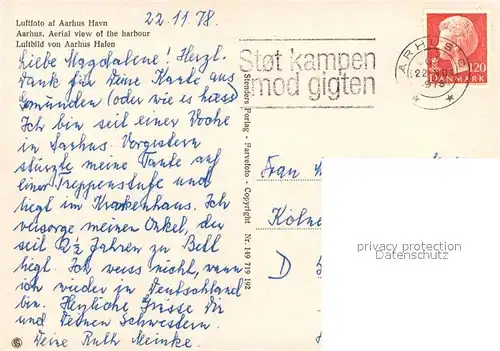 Luftfoto af Aarhus Havn
Aarhus. Aerial view of the harbour
Luftbild von Aarhus Hafen
22.11.78.
Liebe Magdalene! Herzl.
Dank für Deine Karte aus
Gemünden (oder wie es hiess)
Ich bin seit einer Woche
in Aarhus. Vorgestern
stürzte meine Tante auf
einer Treppenstufe und
liegt im Krankenhaus. Ich
versorge meinen Onkel, der
seit 2½ Jahren zu Bett
liegt. Ich weiss nicht, wann
ich wieder in Deutschland
bin. Herzliche Grüsse Dir
und Deinen Schwestern.
Deine Ruth Meinke.
Stenders Forlag - Farvefoto - Copyright Nr. 149 719 192
Støt kampen
mod gigten
AARHUS
22
1978
120
DANMARK
Frau
Kölne
D
privacy protection
Datenschutz